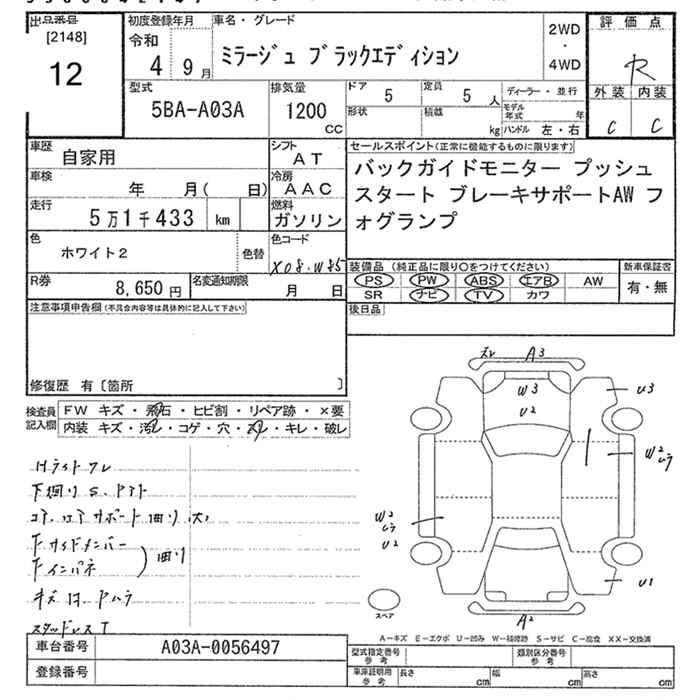 出品番号
[2148]
12
初度登録年月
令和
4 9月
車名・グレード
ミラージュ ブラックエディション
2WD
・
4WD
評価点
R
外装 内装
C C
型式
5BA-A03A
排気量
1200
CC
ドア 5
定員 5 人
形状
積載 kg
ディーラー・並行
モデル年式 年
ハンドル 左・右
車歴 自家用
シフト AT
車検 年 月( 日)
冷房 AAC
走行 5万1千433 km
燃料 ガソリン
色 ホワイト2
色替
色コード
X08.W85
R券 8,650円
名変通知期限 月 日
セールスポイント(正常に機能するものに限ります)
バックガイドモニター プッシュ
スタート ブレーキサポートAW フ
ォグランプ
装備品 (純正品に限り○をつけてください)
PS PW ABS エアB AW
SR ナビ TV カワ
新車保証書
有・無
後日品
注意事項申告欄(不具合内容等は具体的に記入して下さい)
修復歴 有〔箇所 〕
検査員
記入欄
FW キズ・飛石・ヒビ割・リペア跡・×要
内装 キズ・汚レ・コゲ・穴・スレ・キレ・破レ
Hライトワレ
下廻りS.
コア.ロアサポート曲り(大)
Fサイドメンバー
Fインパネ
曲り
スタッドレスT
ズレ A3
W3
U2
U3
W2
ムラ
W2
ムラ
U2
U1
A2
スペア
A-キズ E-エクボ U-凹み W-補修跡 S-サビ C-腐食 XX-交換済
車台番号 A03A-0056497
登録番号
型式指定番号
参考
類別区分番号
参考
車庫証明用
参考
長さ cm
幅 cm
高さ cm